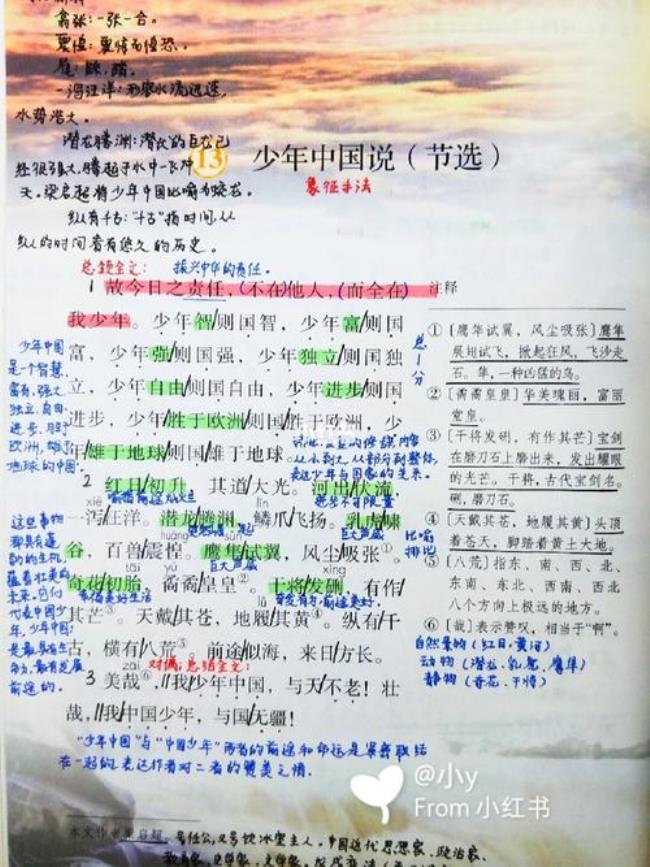 翕张：一张一合。
一泻汪洋：形容水流迅速，
水势浩大。
潜龙腾渊：潜伏的巨龙已
经很强大，腾起于水中一飞冲
天。梁启超将少年中国比喻为蛟龙。
纵有千古："千古"指时间，从
纵的时间看有悠久的历史。
13 少年中国说（节选）
象征手法
总领全文： 振兴中华的责任。
1 故今日之责任，(不在)他人，(而全在)
我少年。少年智/则国智，少年富/则国
富，少年强/则国强，少年独立/则国独
立，少年自由/则国自由，少年进步/则国
进步，少年/胜于欧洲/则国/胜于欧洲，少
年/雄于地球/则国/雄于地球。
2 红日/初升，其道/大光。河出/伏流，
xiè lín
一泻/汪洋。潜龙/腾渊，鳞爪/飞扬。乳虎/啸
huáng sǔn
谷，百兽/震惶。鹰隼/试翼，风尘/吸张①。
tāi yù xíng
奇花/初胎，矞矞/皇皇②。干将/发硎，有作/
lǚ
其芒③。天戴/其苍，地履/其黄④。纵有/千
古，横有/八荒⑤。前途/似海，来日/方长。
zāi
对偶，总结全文：
3 美哉⑥，//我/少年中国，与天/不老！壮
哉，//我/中国少年，与国/无疆！
"少年中国"与"中国少年"两者的前途和命运是紧密联结
在一起的，表达作者对二者的赞美之情。
少年中国
是一个智慧、
富有、强大
独立、自由、
进步、胜于
欧洲、雄于
地球的中国。
总
分
巨大声威
巨大声威
比喻
排比
这些事物
都具有蓬
勃的生机，
蕴着壮美的
未来。它们
代表中国少
年，少年中国
是最具有生
前途的。
注释
① ［鹰隼试翼，风尘吸张］鹰隼
展翅试飞，掀起狂风，飞沙走
石。隼，一种凶猛的鸟。
② ［矞矞皇皇］华美瑰丽，富丽
堂皇。
③ ［干将发硎，有作其芒］宝剑
在磨刀石上磨出来，发出耀眼
的光芒。干将，古代宝剑名。
硎，磨刀石。
④ ［天戴其苍，地履其黄］头顶
着苍天，脚踏着黄土大地。
⑤ ［八荒］指东、南、西、北、
东南、东北、西南、西北
八个方向上极远的地方。
⑥ ［哉］表示赞叹，相当于“啊”。
自然景物（红日、黄河）
动物（潜龙、乳虎、鹰隼）
静物（奇花、干将）
@小y
From 小红书
本文作者梁启超。号任公，又号饮冰室主人，中国近代思想家、政治家、